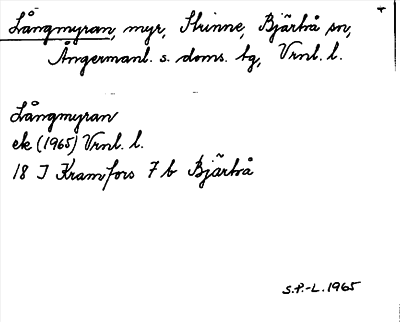 Långmyran, myr, Skinne, Bjärtrå sn,
Ångermanl. s. doms. tg, Vrnl. l.
Långmyran
ek (1965) Vrnl. l.
18 I Kramfors 7 b Bjärtrå
S.P.-L. 1965